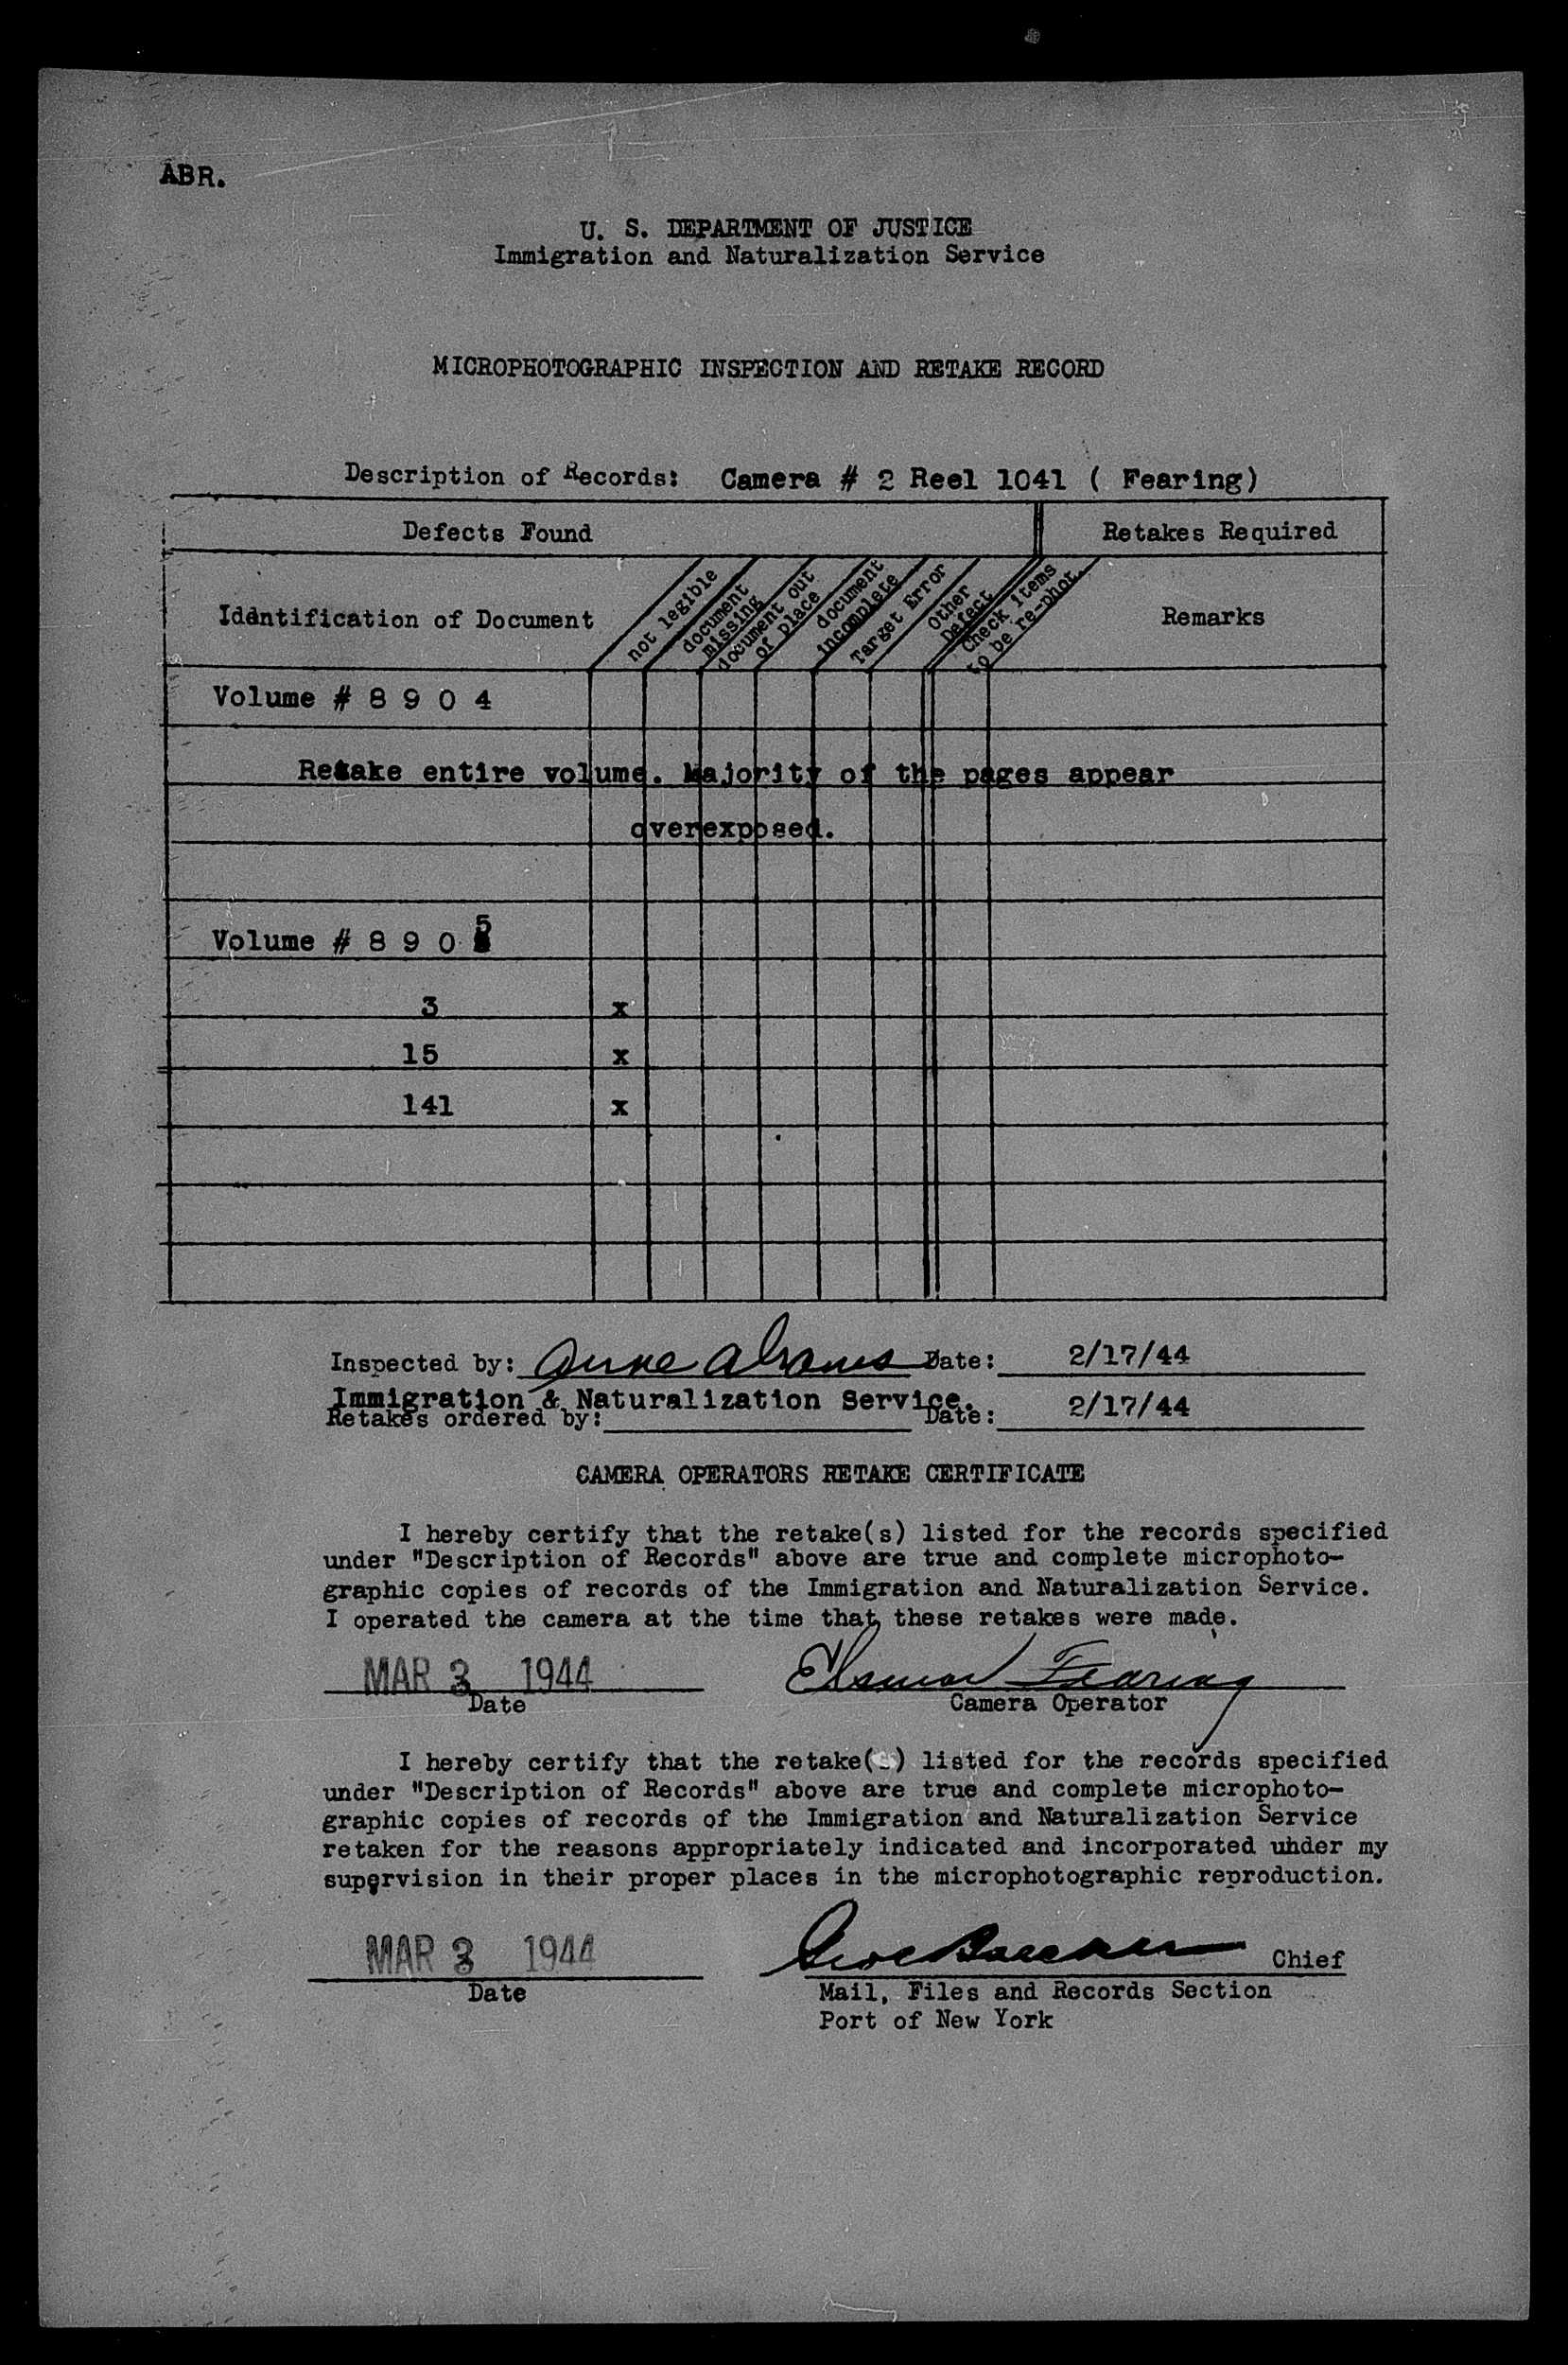 ABR.
U. S. DEPARTMENT OF JUSTICE
Immigration and Naturalization Service
MICROPHOTOGRAPHIC INSPECTION AND RETAKE RECORD
Description of Records: Camera # 2 Reel 1041 ( Fearing)
Defects Found
Retakes Required
Identification of Document
not legible
document
missing
document out
of place
document
incomplete
Target Error
Other
Defect
Check items
to be re-phot.
Remarks
Volume # 8 9 0 4
Retake entire volume. Majority of the pages appear
overexposed.
Volume # 8 9 0 5
3 x
15 x
141 x
Inspected by: Anne Abrams Date: 2/17/44
Immigration & Naturalization Service.
Retakes ordered by: Date: 2/17/44
CAMERA OPERATORS RETAKE CERTIFICATE
I hereby certify that the retake(s) listed for the records specified
under "Description of Records" above are true and complete microphoto-
graphic copies of records of the Immigration and Naturalization Service.
I operated the camera at the time that these retakes were made.
MAR 3 1944 Eleanor Fearing
Date Camera Operator
I hereby certify that the retake(s) listed for the records specified
under "Description of Records" above are true and complete microphoto-
graphic copies of records of the Immigration and Naturalization Service
retaken for the reasons appropriately indicated and incorporated under my
supervision in their proper places in the microphotographic reproduction.
MAR 3 1944 Chief
Date Mail, Files and Records Section
Port of New York